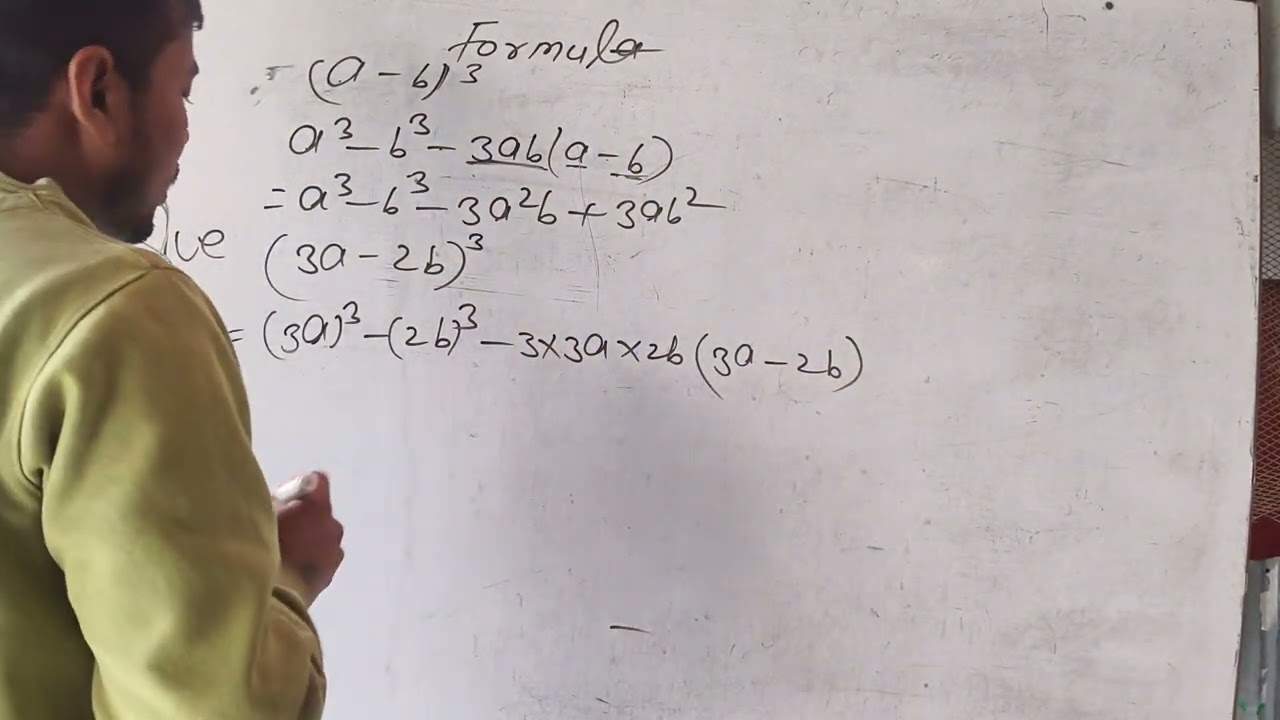 Formula
= (a - b)³
a³ - b³ - 3ab(a - b)
= a³ - b³ - 3a²b + 3ab²
(3a - 2b)³
= (3a)³ - (2b)³ - 3×3a×2b(3a - 2b)